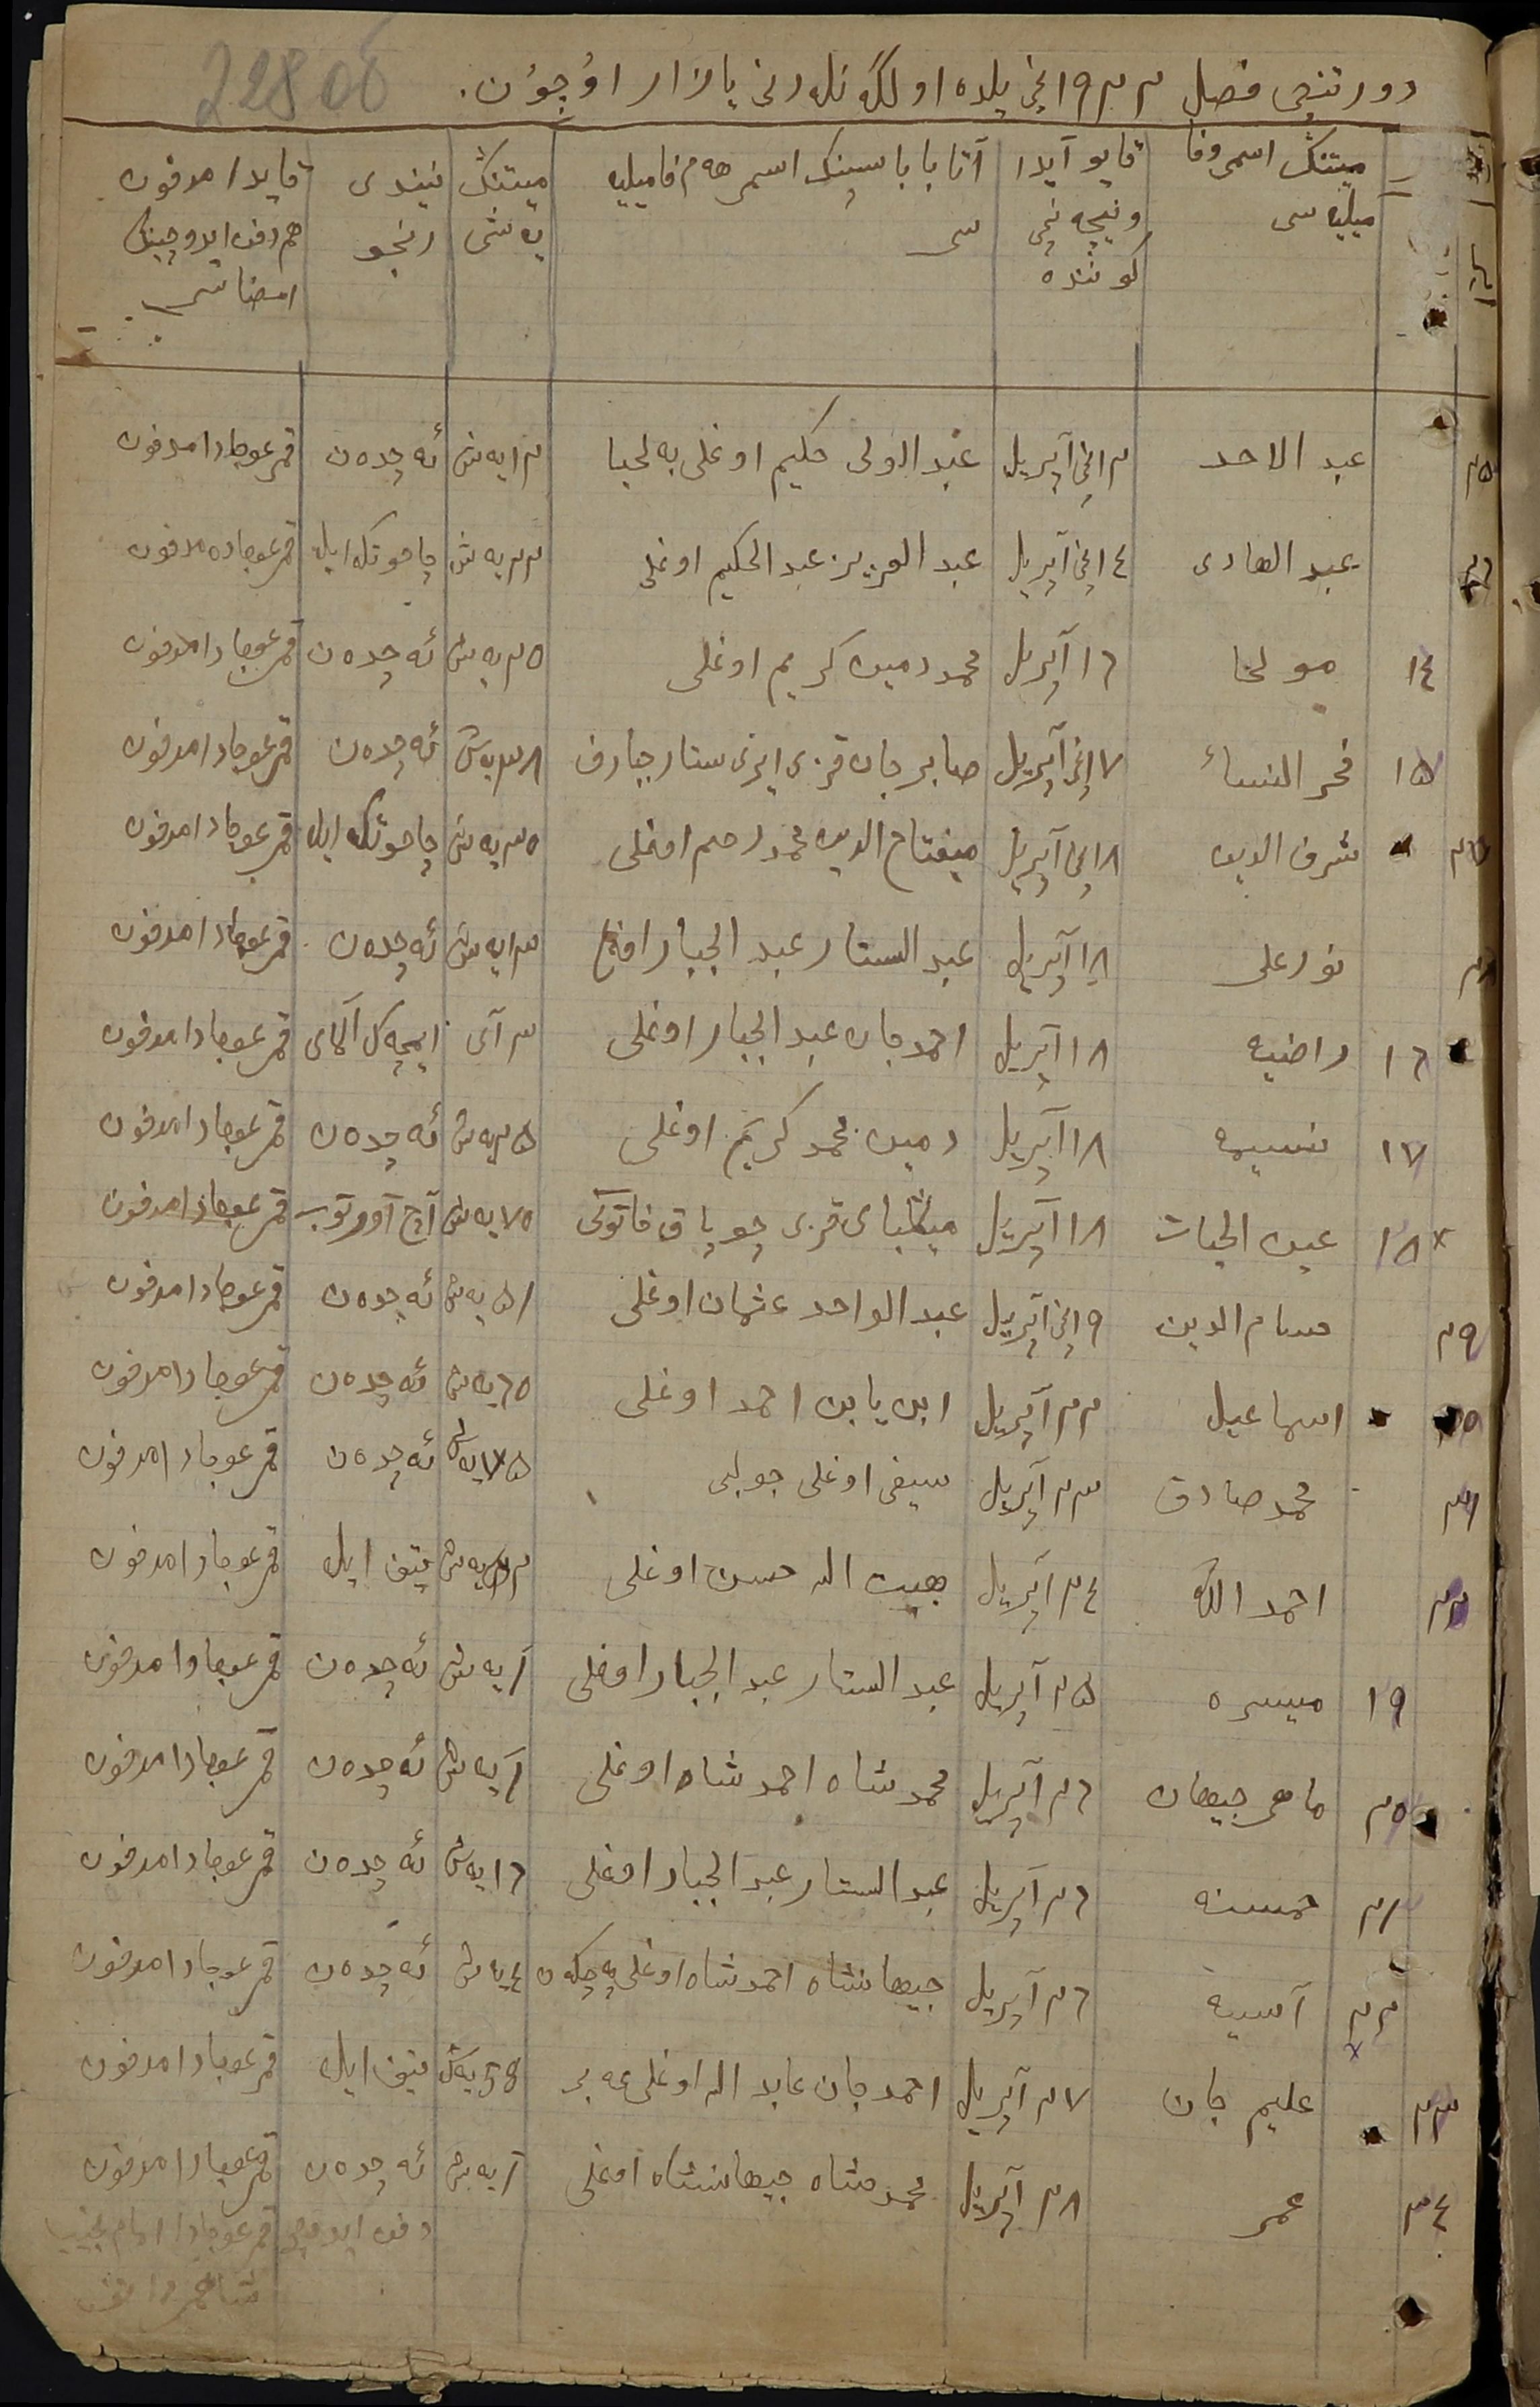 22806
دورتنچی فصل ١٩٢٢نچی یلده اولگه نله رنی یازار اوُچوُن.
میتنڭ اسمی وفا میلیه سی | قایو آیدا ونیچه نچی کوننده | آتا باباسینڭ اسمی هم فامیلیه سی | میتنڭ یه شی | نیندی رنجو | قایدا مدفون هم دفن ایدوچینڭ امضاسی
٢٥ عبد الاحد | ١٢نچی آپریل | عبد الولی حکیم اوغلی | ١٢ یه ش | ئه چده ن | قرغوجادا مدفون
٢٦ عبد الهادی | ١٤نچی آپریل | عبد العزیز عبد الحکیم اوغلی | ٢٢ یه ش | چاحوتکه ایله | قرغوجاده مدفون
١٤ | ١٦ آپریل | محمد رمین کریم اوغلی | ٢٥ یه ش | ئه چده ن | قرغوجادا مدفون
١٥ فخر النساء | ١٧نچی آپریل | صابر جان قزی ایری ستار جبارف | ٣٨ یه ش | ئه چده ن | قرغوجادا مدفون
٢٧ شرف الدین | ١٨نچی آپریل | میفتاح الدین محمد رحیم اوغلی | ٣٥ یه ش | چاحوتکه ایله | قرغوجادا مدفون
٢٨ نور علی | ١٨ آپریل | عبد الستار عبد الجبار اوغلی | ١٣ یه ش | ئه چده ن | قرغوجادا مدفون
١٦ راضیه | ١٨ آپریل | احمد جان عبد الجبار اوغلی | ٣ آی | ایمچه ک آلمای | قرغوجادا مدفون
١٧ نسیمه | ١٨ آپریل | رمین محمد کریم اوغلی | ٢٥ یه ش | ئه چده ن | قرغوجادا مدفون
١٨ عین الحیات | ١٨ آپریل | میڭبای قزی | ٧٥ یه ش | آچ آورتوب | قرغوجادا مدفون
٢٩ حسام الدین | ١٩نچی آپریل | عبد الواحد عثمان اوغلی | ٥١ یه ش | ئه چده ن | قرغوجادا مدفون
اسماعیل | ٢٢ آپریل | ابن یامن احمد اوغلی | ٦٥ یه ش | ئه چده ن | قرغوجادا مدفون
٣١ محمد صادق | ٢٣ آپریل | سیفی اوغلی | ٧٥ یه ش | ئه چده ن | قرغوجادا مدفون
٣٢ احمد الله | ٢٤ آپریل | هبت الله حسن اوغلی | یه ش | تیف ایله | قرغوجادا مدفون
١٩ میسره | ٢٥ آپریل | عبد الستار عبد الجبار اوغلی | ٦ یه ش | ئه چده ن | قرغوجادا مدفون
٢٠ ماهی جیهان | ٢٦ آپریل | محمد شاه احمد شاه اوغلی | ٦ یه ش | ئه چده ن | قرغوجادا مدفون
٢١ حسنه | ٢٦ آپریل | عبد الستار عبد الجبار اوغلی | ١٦ یه ش | ئه چده ن | قرغوجادا مدفون
٢٢ آسیه | ٢٦ آپریل | جیهانشاه احمد شاه اوغلی | ٤ یاش | ئه چده ن | قرغوجادا مدفون
٣٣ علیم جان | ٢٧ آپریل | احمد جان عابد الله اوغلی | 58 یه ش | تیف ایله | قرغوجادا مدفون
٣٤ عمر | ٢٨ آپریل | محمد شاه جیهانشاه اوغلی | ٦ یه ش | ئه چده ن | قرغوجادا مدفون
دفن ایدوچی قرغوجادا امام